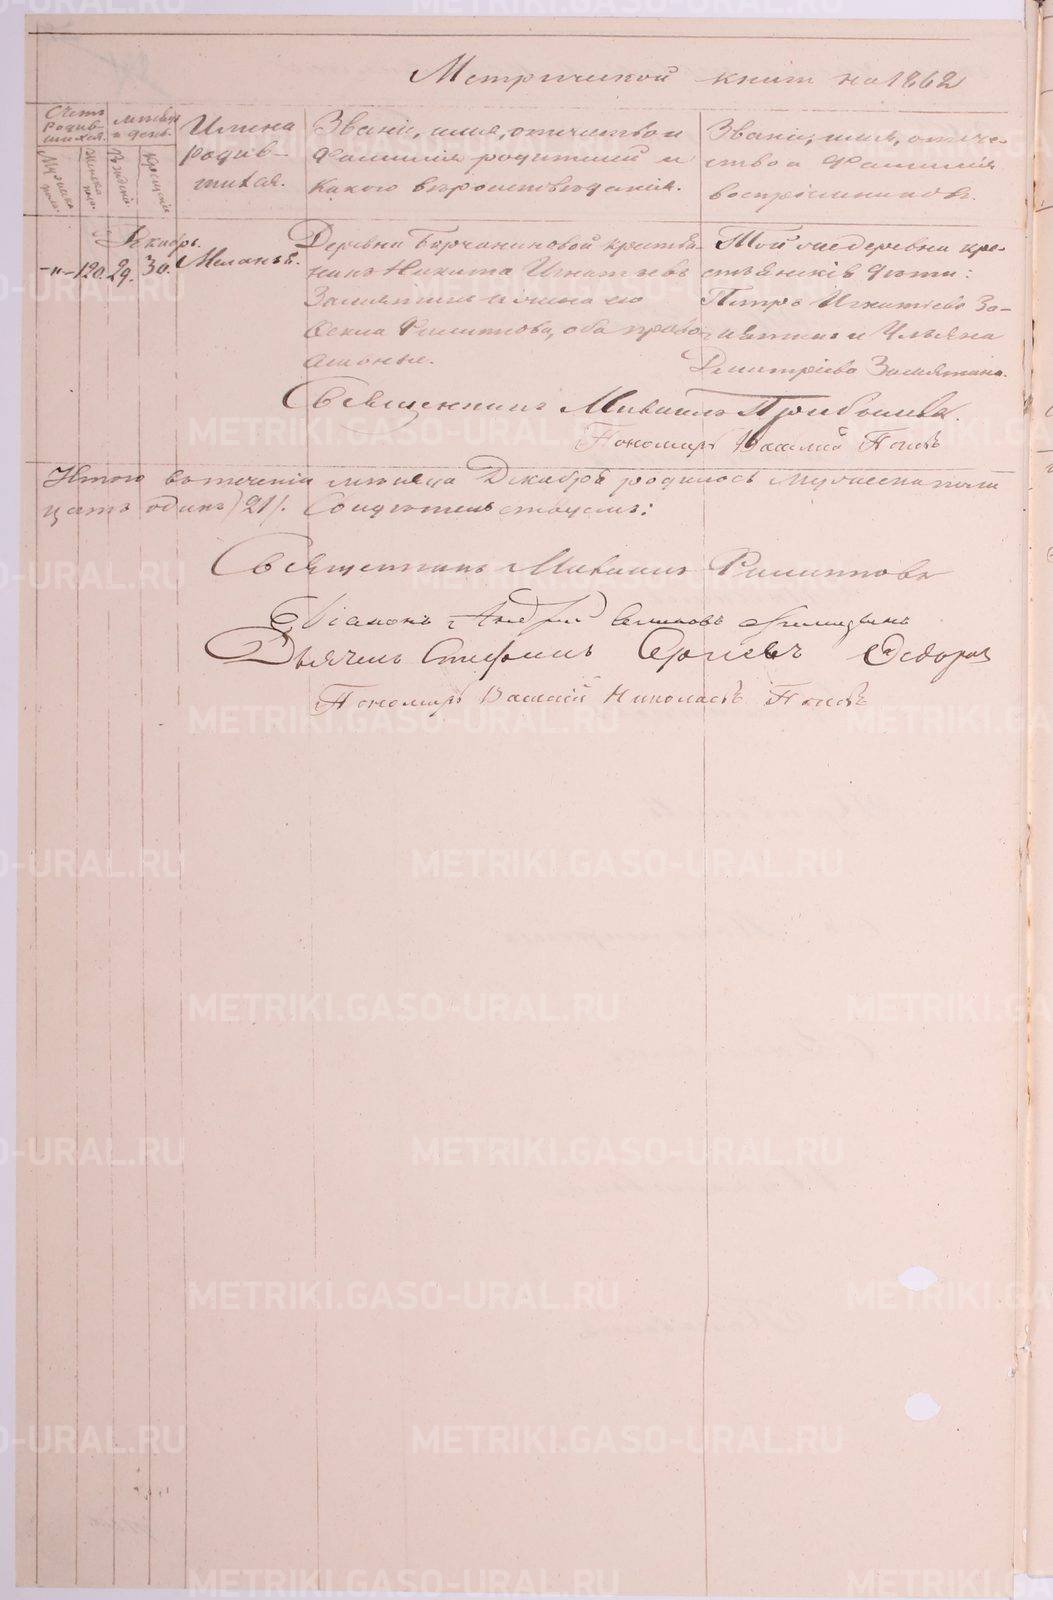 Метрической книги на 1862
Счетъ родив-шихся.
Мужеска пола.
Женска пола.
Месяцъ и день.
Рожденія
Крещенія
Имена
родив-
шихся.
Званіе, имя, отчество и
фамилія родителей и
какого вѣроисповѣданія.
Званіе, имя, отече-
ство и фамилія
воспріемниковъ.
Декабрь.
-"- 120. 29. 30. Меланья.
Деревни Борчаниновой крестья-
нинъ Никита Игнатьевъ
Замятинъ и жена его
Филиппова, оба право-
славные.
Той же деревни кре-
стьянскіе дѣти:
Петръ Игнатіевъ За-
мятинъ и Ульяна
Дмитріева Замятина.
Священникъ Михаилъ
Пономарь Василій Поповъ
Итого въ теченіи месяца Декабря родилось мужеска пола
цать одинъ) 21.
Священникъ Михаилъ Филипповъ
Діаконъ Андрей
Дьячекъ Стефанъ Сергіевъ Ѳедоровъ
Пономарь Василій Николаевъ Поповъ
METRIKI.GASO-URAL.RU